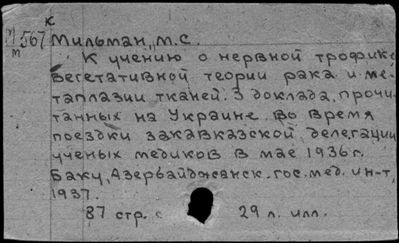 К
М/м 567 Мильман, М.С.
К учению о нервной трофике
Вегетативной теории рака и ме-
таплазии тканей. 3 доклада, прочи-
танных на Украине. Во время
поездки закавказской делегации
ученых медиков в мае 1936 г.
Баку, Азербайджанск. гос. мед. ин-т,
1937.
87 стр. с 29 л. илл.